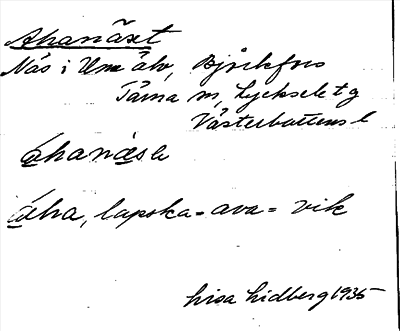 Ahanäset
Näs i Ume älv, Björkfors
Tärna sn, Lycksele tg
Västerbottens l
åhanäsɘ
åha, lapska = ava = vik
Lisa Lidberg 1935